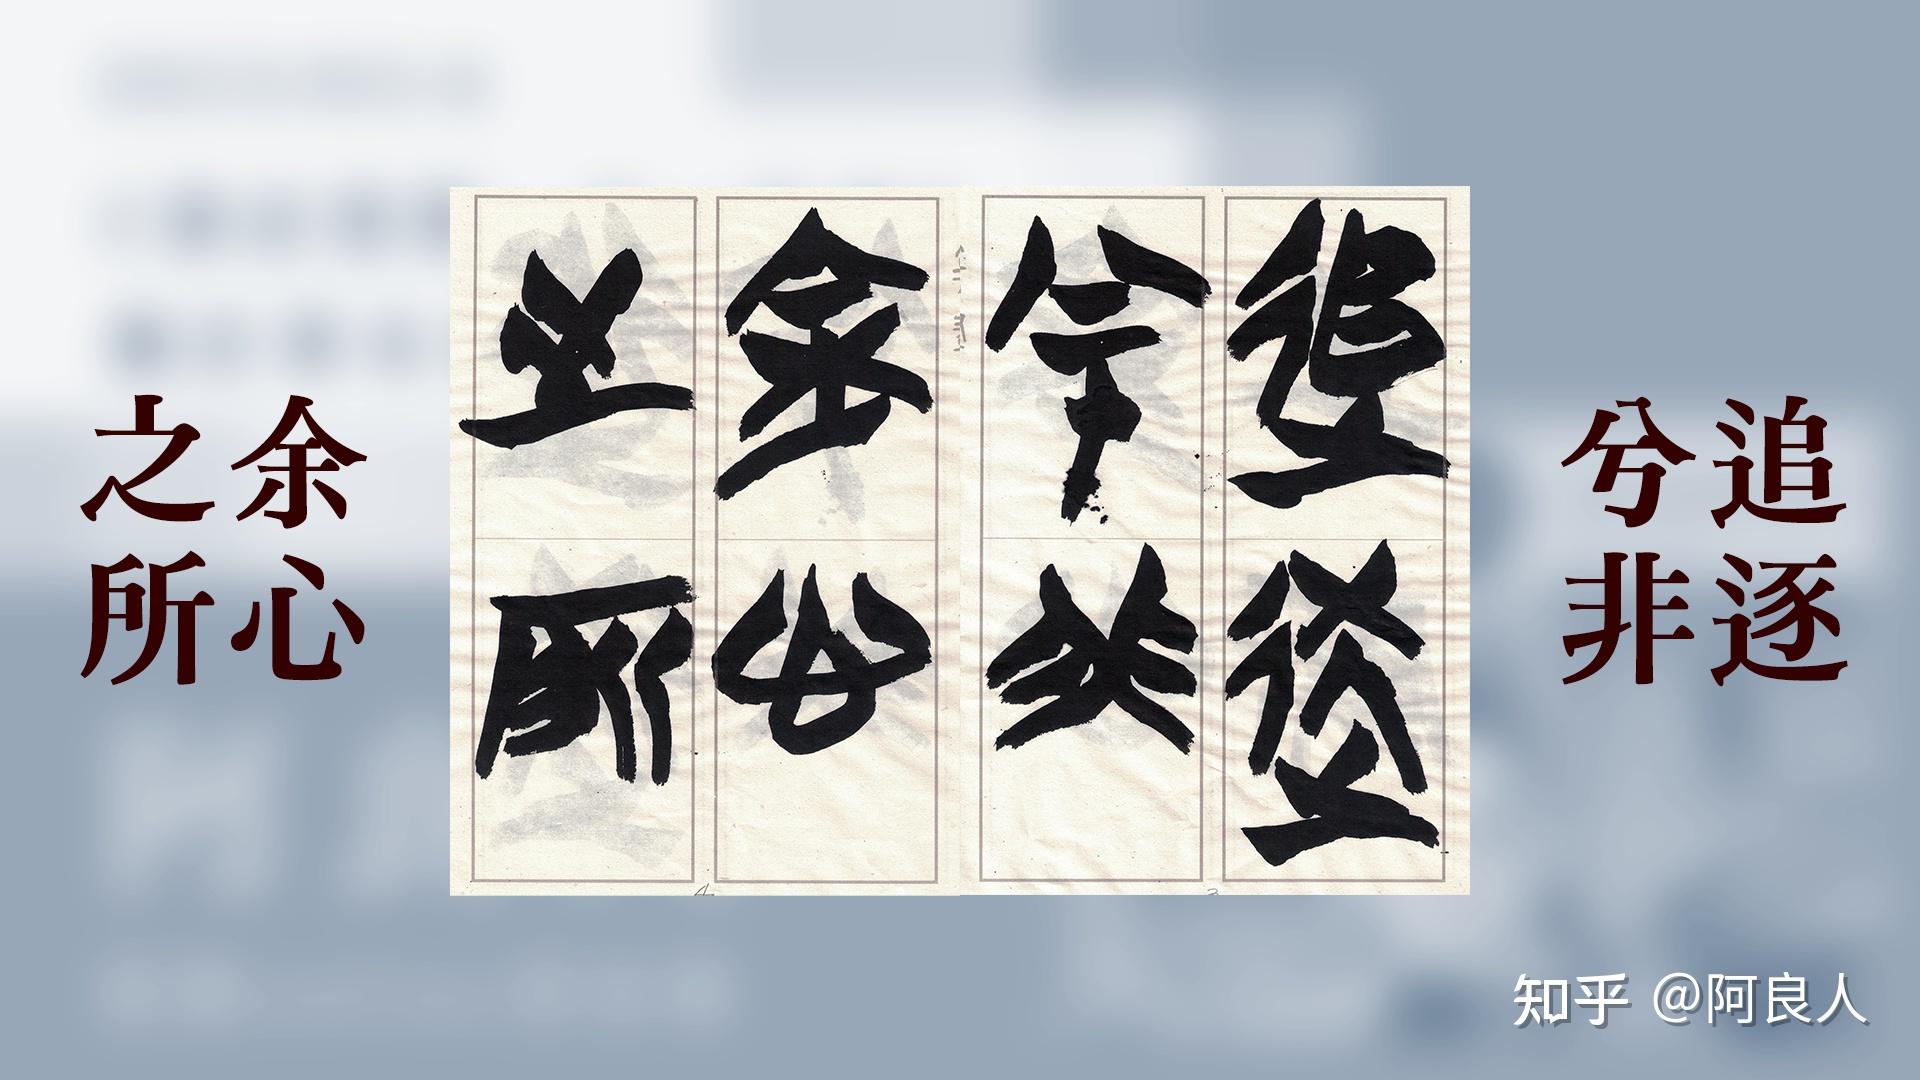 追逐
兮非
余心
之所
追逐
兮非
余心
之所
知乎 @阿良人